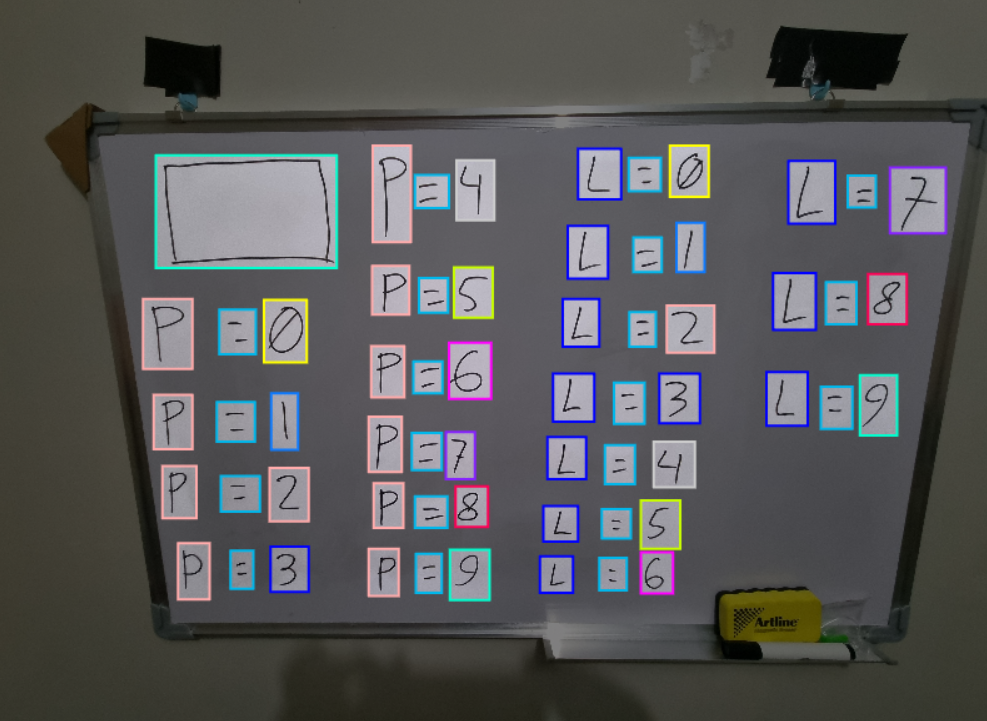 P = 0
P = 1
P = 2
P = 3
P = 4
P = 5
P = 6
P = 7
P = 8
P = 9
L = 0
L = 1
L = 2
L = 3
L = 4
L = 5
L = 6
L = 7
L = 8
L = 9
Artline